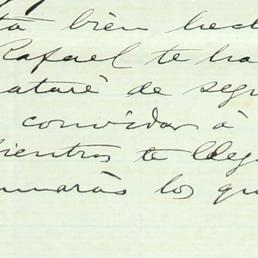 ta bien hec
Rafael te ha
ataré de seg
convidar à
mientras te lleg
marás los qu